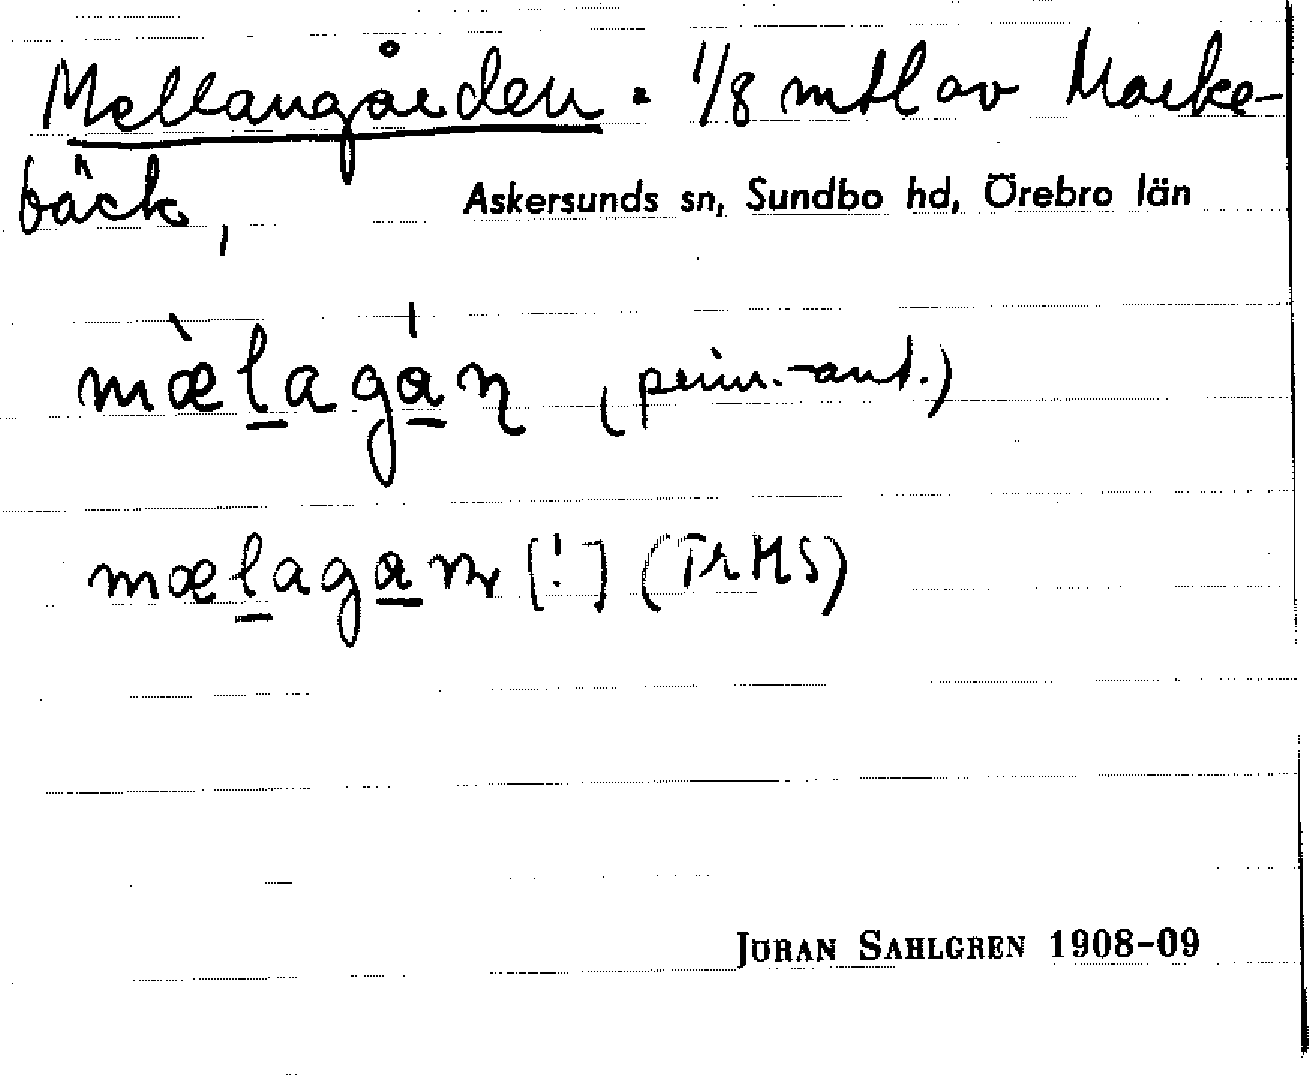 Mellangården. 1/8 mtl av Marke-
bäck,
Askersunds sn, Sundbo hd, Örebro län
mæ̀l̲agá̲ɳ (prim.-ant.)
mæl̲aga̲ [!] (TrHS)
JÖRAN SAHLGREN 1908-09